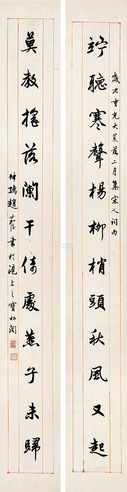 歲次重光大荒落二月集宋人詞句
竚聽寒聲楊柳梢頭秋風又起
莫教搖落闌干倚處燕子未歸
趙書於滬上之松閣